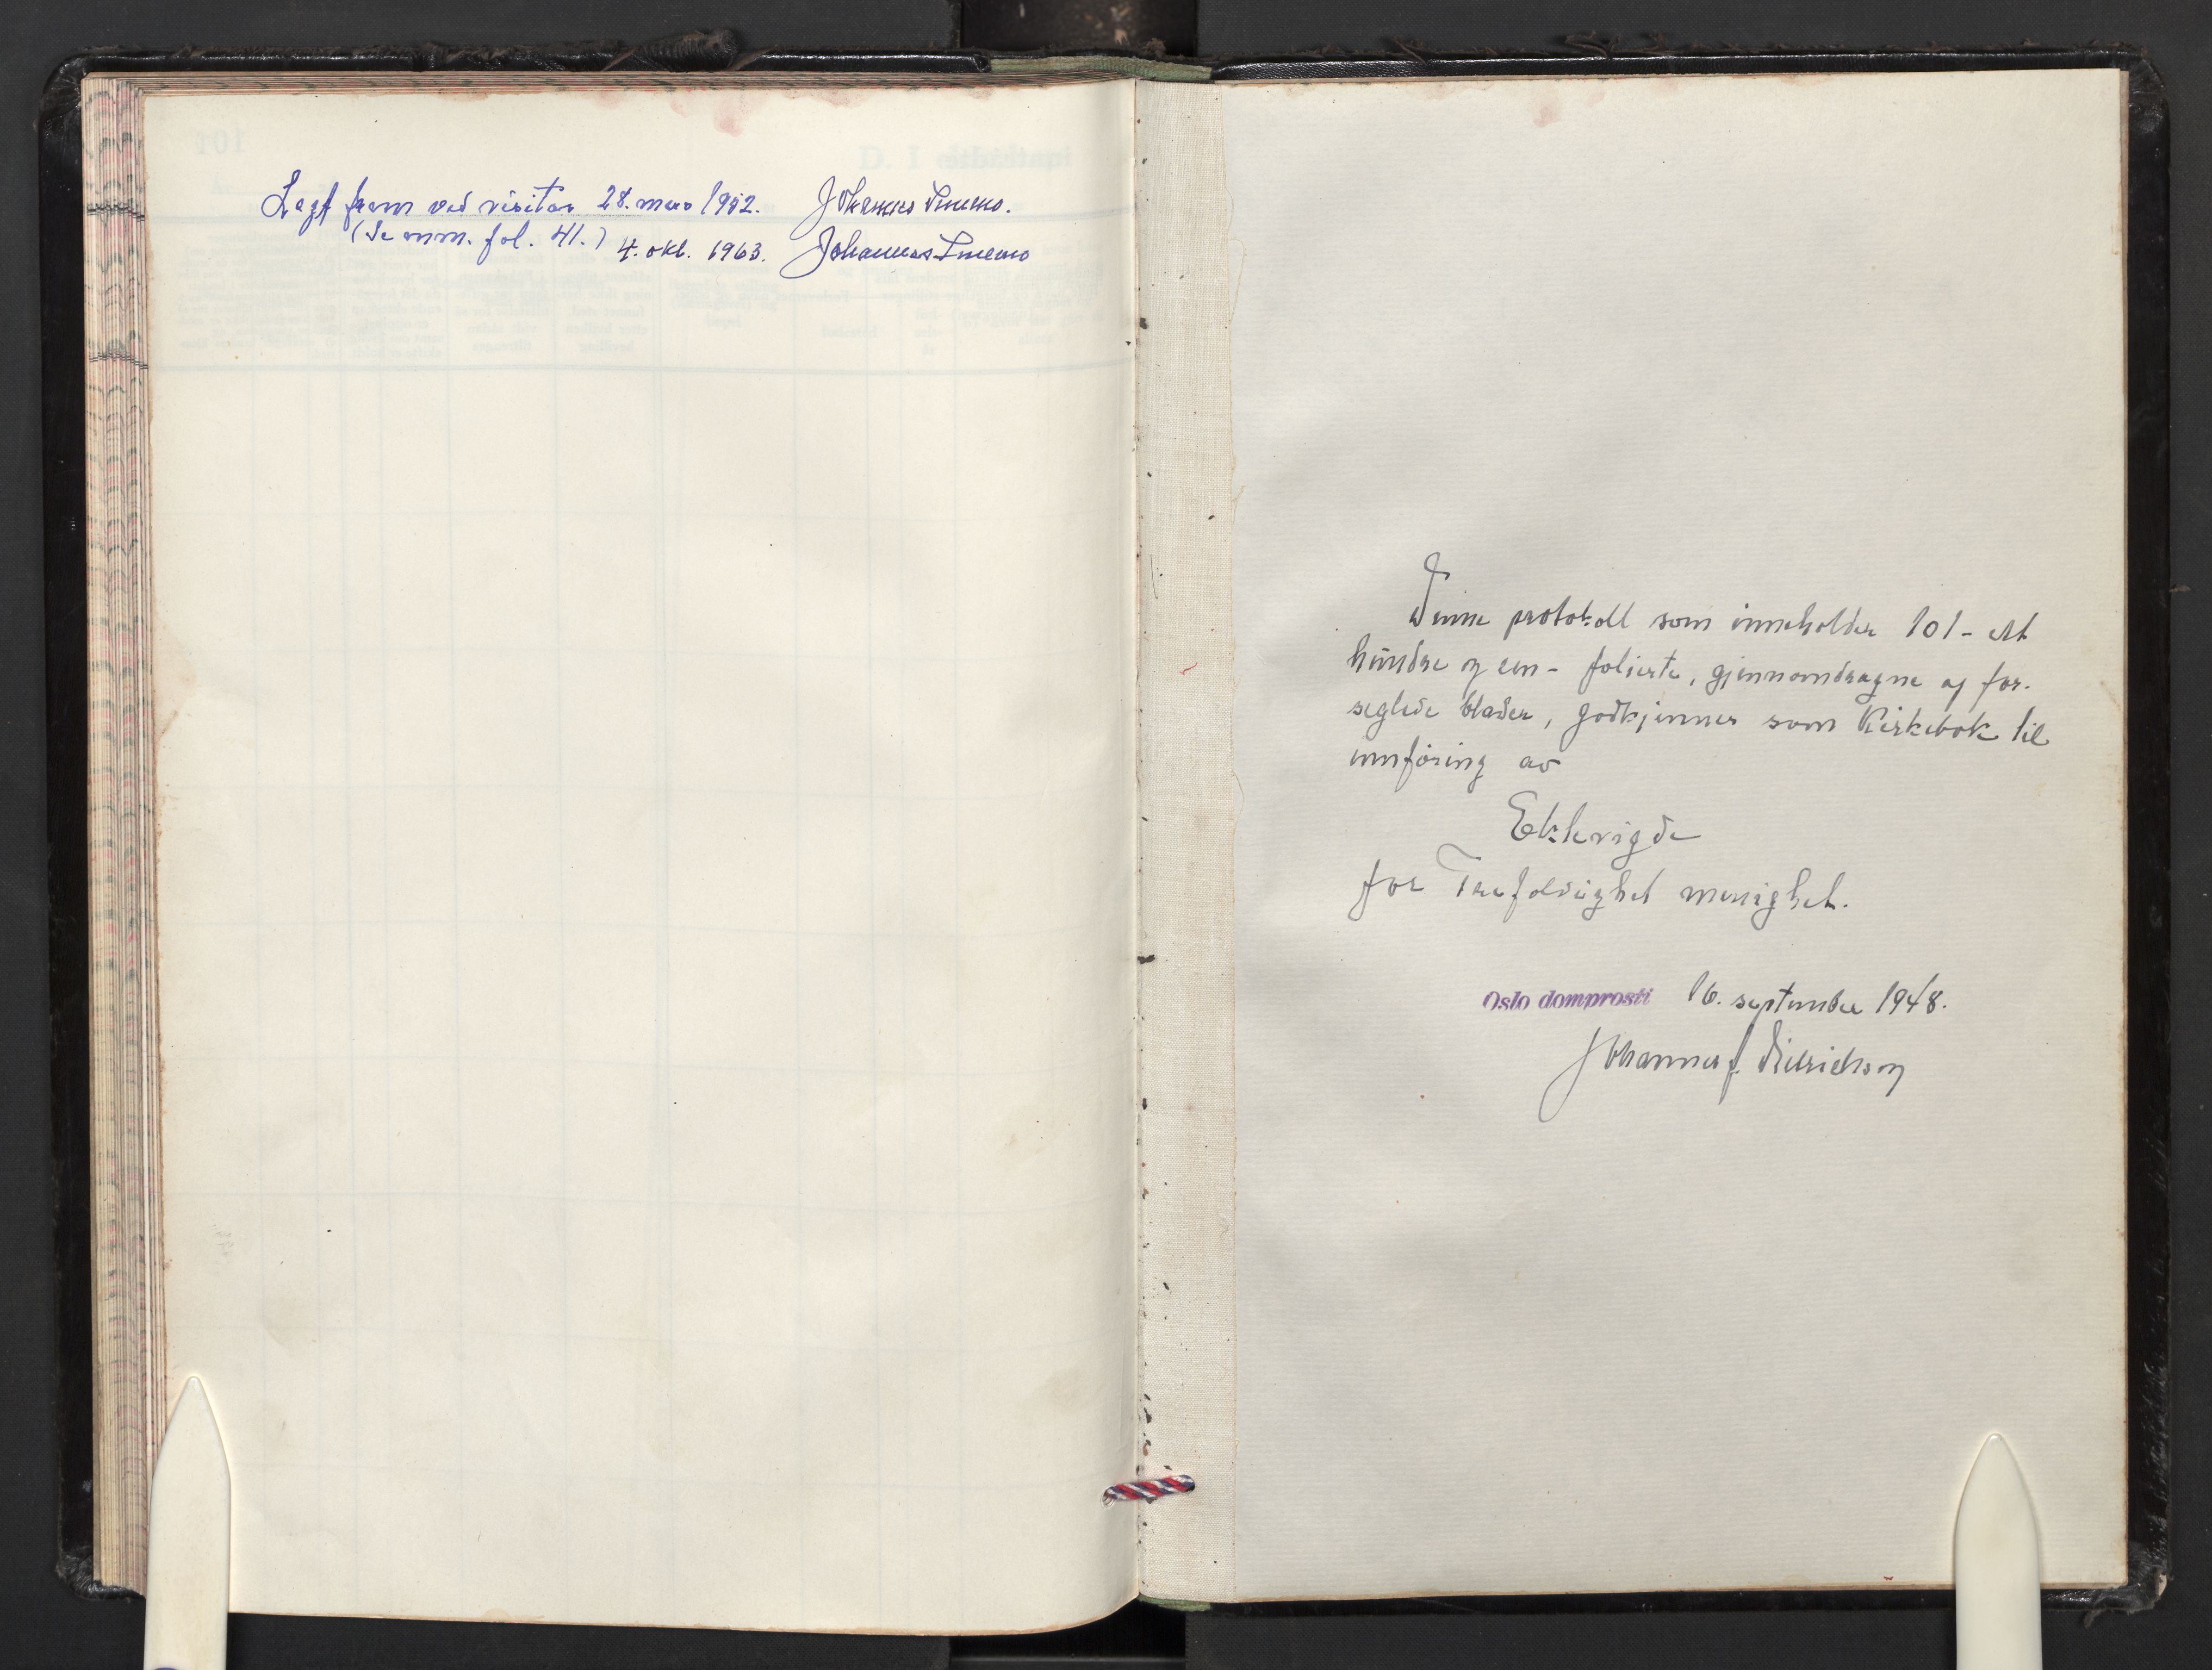 Lagt fram ved visitas 28. mars 1952. Johannes Smemo.
(Se anm. fol. 41.) 4. okt. 1963. Johannes Smemo
Denne protokoll som inneholder 101 - ett
hundre og en - folierte, gjennomdragne og for-
seglede blader, godkjennes som Kirkebok til
innföring av
Ektevigde
for Trefoldighet menighet.
Oslo domprosti 16. september 1948.
Johannes J. Dietrichson